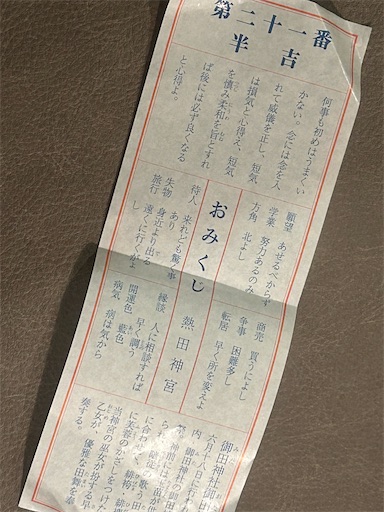 第二十一番
半吉
何事も初めはうまくい
かない。念には念を入
れて威儀を正し、短気
は損気と心得え、短気
を慎み柔和を旨とすれ
ば後には必ず良くなる
と心得よ。
おみくじ 熱田神宮
願望 あせるべからず
学業 努力あるのみ
方角 北よし
待人 来れども驚く事
あり
失物 身近より出る
旅行 遠くに行くがよ
し
商売 買うによし
争事 困難多し
転居 早く所を変えよ
縁談 人に相談すれば
早く調う
開運色 藍色
病気 病は気から
御田神社御田
六月十八日に行
内、御田神
神前に
に合わ 歌う田
緋袴、緋
に芙蓉のかざしをつけた
当神宮の巫女が扮する早
乙女が、優雅な田舞を奉
奏する。